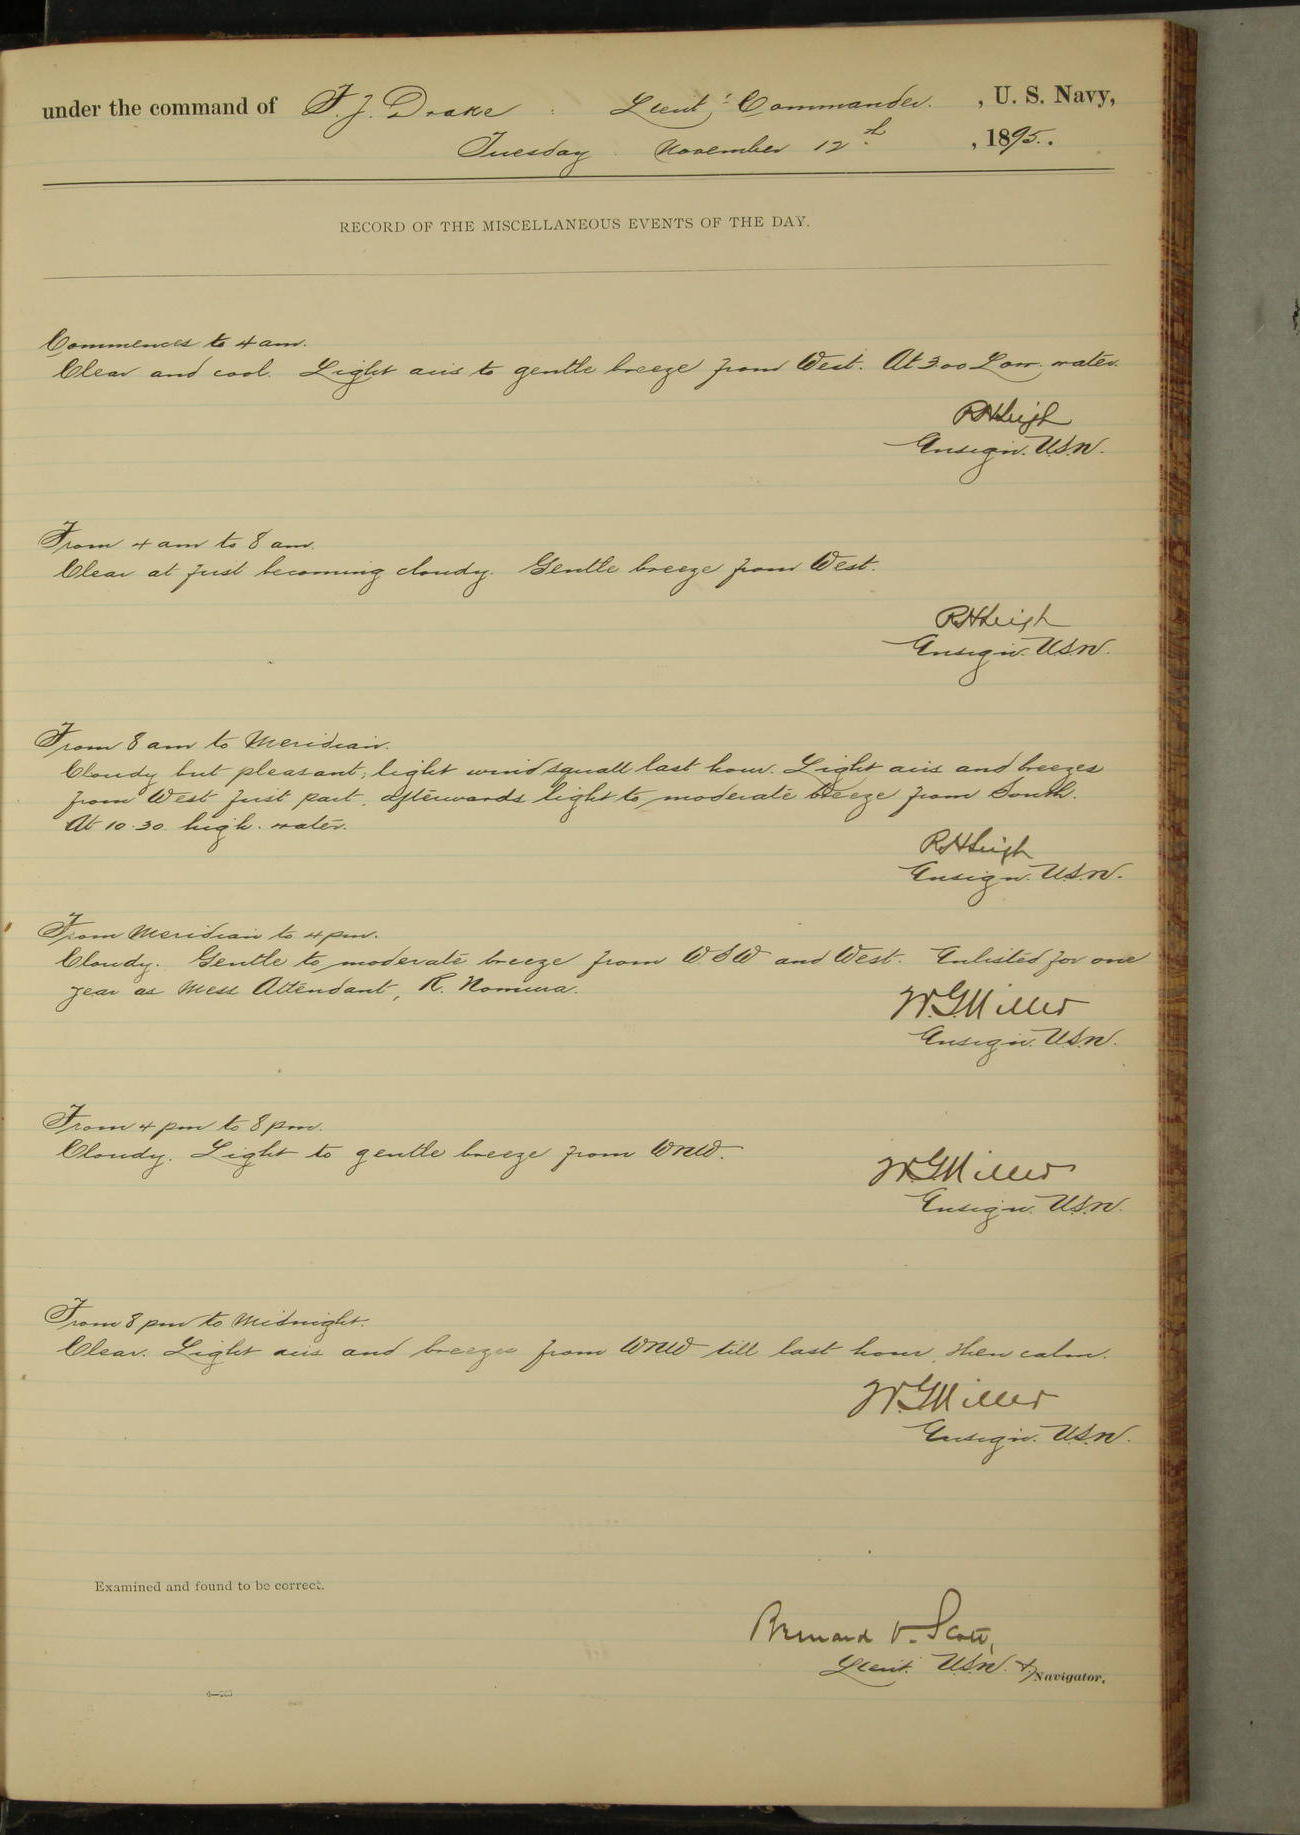 under the command of F. J. Drake : Lieut. Commander. , U. S. Navy,
Tuesday November 12th , 1895.
RECORD OF THE MISCELLANEOUS EVENTS OF THE DAY.
Commences to 4 am.
Clear and cool. Light airs to gentle breeze from West. At 3.00 Low. water.
R.H. Leigh
Ensign. U.S.N.
From 4 am to 8 am.
Clear at first becoming cloudy. Gentle breeze from West.
R.H. Leigh
Ensign. U.S.N.
From 8 am to Meridian.
Cloudy but pleasant, light wind squall last hour. Light airs and breezes
from West first part, afterwards light to moderate breeze from South.
At 10.30 high. water.
R.H. Leigh
Ensign. U.S.N.
From Meridian to 4 pm.
Cloudy. Gentle to moderate breeze from WSW and West. Enlisted for one
year as Mess Attendant, R. Nomura.
W.G. Miller
Ensign. U.S.N.
From 4 pm to 8 pm.
Cloudy. Light to gentle breeze from WNW.
W.G. Miller
Ensign. U.S.N.
From 8 pm to Midnight.
Clear. Light airs and breezes from WNW till last hour, then calm.
W.G. Miller
Ensign. U.S.N.
Examined and found to be correct.
Bernard O. Scott,
Lieut. U.S.N. & Navigator.